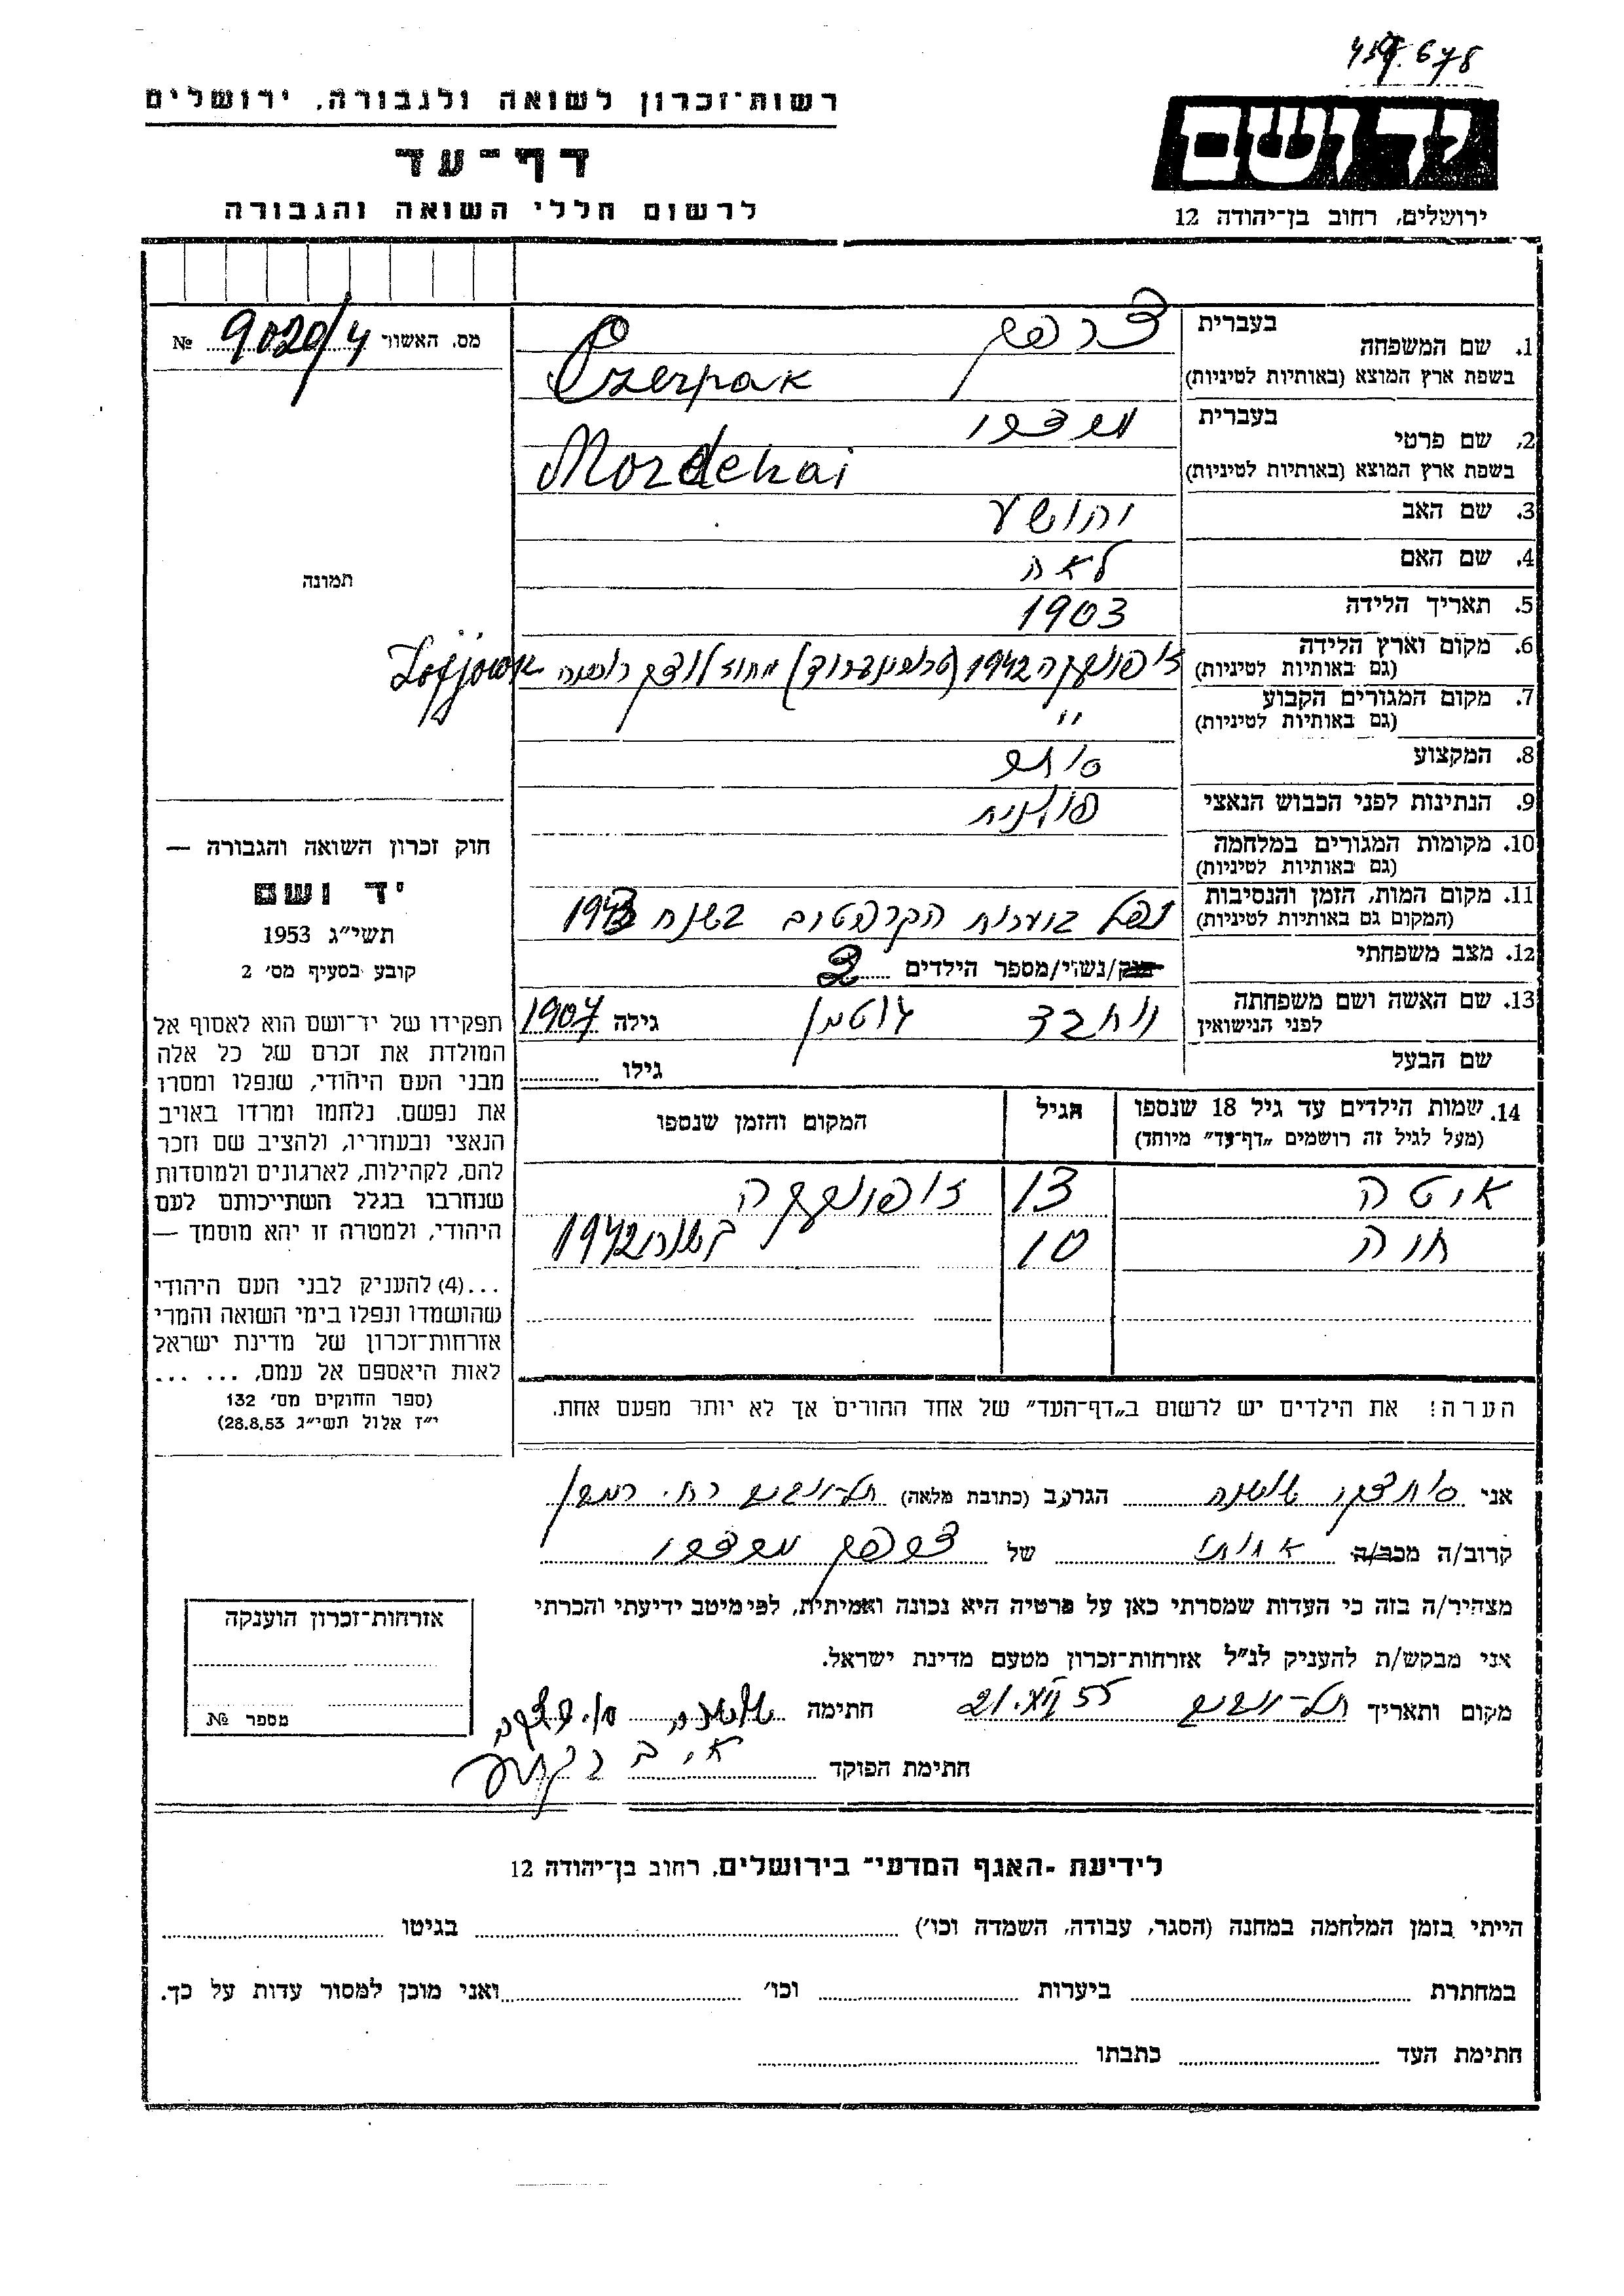 459.678
רשות־זכרון לשואה ולגבורה, ירושלים
דף־עד
לרשום חללי השואה והגבורה
יד ושם
ירושלים, רחוב בן־יהודה 12
מס. האשור 9020/4 №
1. שם המשפחה
בעברית
צרפק
בשפת ארץ המוצא (באותיות לטיניות)
Czerpak
2. שם פרטי
בעברית
מרדכי
בשפת ארץ המוצא (באותיות לטיניות)
Mordehai
3. שם האב יהושע
4. שם האם לאה
5. תאריך הלידה 1903
6. מקום וארץ הלידה
(גם באותיות לטיניות)
1942 מחוז לוצק Zofjowka
7. מקום המגורים הקבוע "
(גם באותיות לטיניות)
8. המקצוע סוחר
9. הנתינות לפני הכבוש הנאצי פולנית
10. מקומות המגורים במלחמה
(גם באותיות לטיניות)
11. מקום המות, הזמן והנסיבות
(המקום גם באותיות לטיניות)
נפל ביערות הקרפטים בשנת 1943
12. מצב משפחתי
רוק/נשוי/מספר הילדים 2
13. שם האשה ושם משפחתה
לפני הנישואין
יוכבד גוטמן גילה 1907
שם הבעל גילו
14. שמות הילדים עד גיל 18 שנספו
(מעל לגיל זה רושמים „דף־עד” מיוחד)
הגיל
המקום והזמן שנספו
איטה 13 זופיובקה
חוה 10 בשנת 1942
הערה! את הילדים יש לרשום ב„דף־העד” של אחד ההורים אך לא יותר מפעם אחת.
תמונה
חוק זכרון השואה והגבורה —
יד ושם
תשי״ג 1953
קובע בסעיף מס׳ 2
תפקידו של יד־ושם הוא לאסוף אל
המולדת את זכרם של כל אלה
מבני העם היהודי, שנפלו ומסרו
את נפשם. נלחמו ומרדו באויב
הנאצי ובעוזריו, ולהציב שם וזכר
להם, לקהילות, לארגונים ולמוסדות
שנחרבו בגלל השתייכותם לעם
היהודי, ולמטרה זו יהא מוסמך —
...(4) להעניק לבני העם היהודי
שהושמדו ונפלו בימי השואה והמרי
אזרחות־זכרון של מדינת ישראל
לאות היאספם אל עמם, ... ...
(ספר החוקים מס׳ 132
י״ז אלול תשי״ג 28.8.53)
אני הגר/ב (כתובת מלאה) תל־יוסף
קרוב/ה מכר/ה אחותו של צרפק מרדכי
מצהיר/ה בזה כי העדות שמסרתי כאן על פרטיה היא נכונה ואמיתית, לפי מיטב ידיעתי והכרתי
אני מבקש/ת להעניק לנ״ל אזרחות־זכרון מטעם מדינת ישראל.
מקום ותאריך 55 21. חתימה
חתימת הפוקד
אזרחות־זכרון הוענקה
מספר №
לידיעת ־האגף המדעי״ בירושלים, רחוב בן־יהודה 12
הייתי בזמן המלחמה במחנה (הסגר, עבודה, השמדה וכו׳) בגיטו
במחתרת ביערות וכו׳ ואני מוכן למסור עדות על כך.
חתימת העד כתבתו